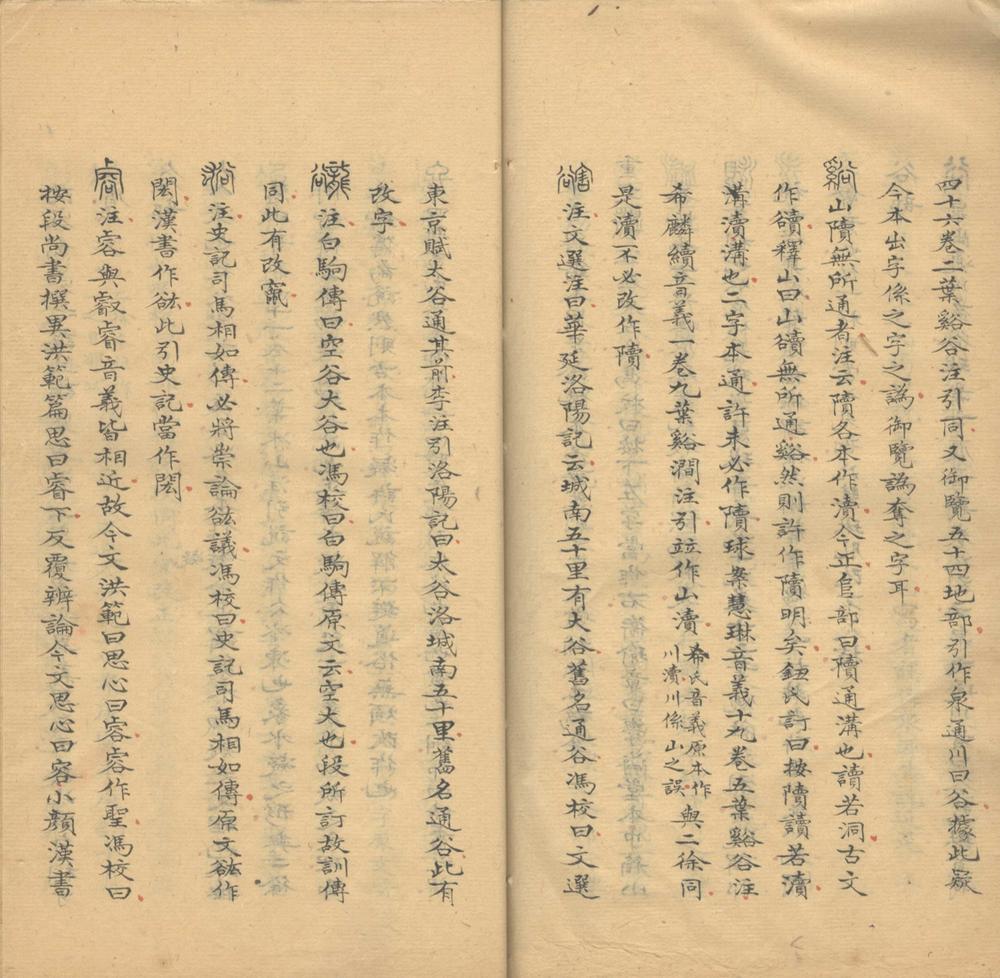 四十六卷二葉谿谷注引同又御覽五十四地部引作泉通川曰谷據此疑
今本出字係之字之譌御覽譌奪之字耳
谿山隫無所通者注云隫各本作瀆今正𨸏部曰隫通溝也讀若洞古文
作䜱釋山曰山䜱無所通谿然則許作隫明矣鈕氏訂曰按隫讀若瀆
溝瀆溝也二字本通許未必作隫球案慧琳音義十九卷五葉谿谷注
希麟續音義一卷九葉谿澗注引竝作山瀆希氏音義原本作川瀆川係山之誤與二徐同
是瀆不必改作隫
谽注文選注曰華延洛陽記云城南五十里有大谷舊名通谷馮校曰文選
東京賦太谷通其前李注引洛陽記曰太谷洛城南五十里舊名通谷此有
改字
谾注白駒傳曰空谷大谷也馮校曰白駒傳原文云空大也段所訂故訓傳
同此有改竄
谹注史記司馬相如傳必將崇論谹議馮校曰史記司馬相如傳原文谹作
閎漢書作谹此引史記當作閎
容注容與叡睿音義皆相近故今文洪範曰思心曰容容作聖馮校曰
按段尚書撰異洪範篇思曰睿下反覆辨論今文思心曰容小顏漢書